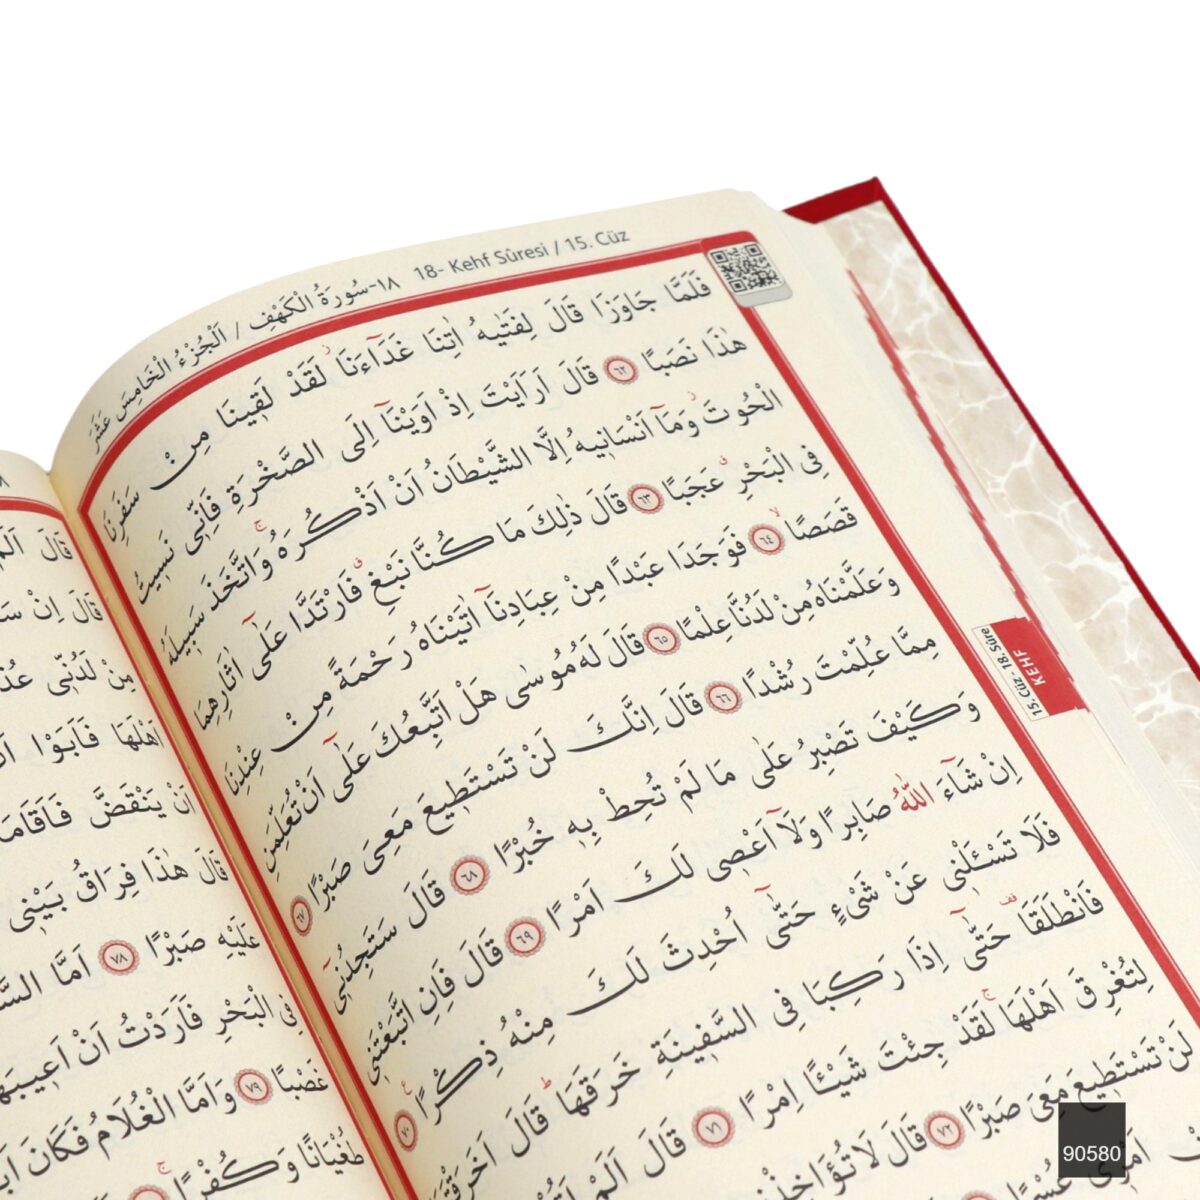 ١٨-سُورَةُ الْكَهْفِ / اَلْجُزْءُ الْخَامِسَ عَشَرَ 18- Kehf Sûresi / 15. Cüz
فَلَمَّا جَاوَزَا قَالَ لِفَتٰيهُ اٰتِنَا غَدَآءَنَاۘ لَقَدْ لَق۪ينَا مِنْ سَفَرِنَا
هٰذَا نَصَبًا ﴿٦٢﴾ قَالَ اَرَاَيْتَ اِذْ اَوَيْنَٓا اِلَى الصَّخْرَةِ فَاِنّ۪ي نَس۪يتُ
الْحُوتَۘ وَمَٓا اَنْسَان۪يهُ اِلَّا الشَّيْطَانُ اَنْ اَذْكُرَهُۚ وَاتَّخَذَ سَب۪يلَهُ
فِي الْبَحْرِۗ عَجَبًا ﴿٦٣﴾ قَالَ ذٰلِكَ مَا كُنَّا نَبْغِۗ فَارْتَدَّا عَلٰٓى اٰثَارِهِمَا
قَصَصًاۙ ﴿٦٤﴾ فَوَجَدَا عَبْدًا مِنْ عِبَادِنَٓا اٰتَيْنَاهُ رَحْمَةً مِنْ عِنْدِنَا
وَعَلَّمْنَاهُ مِنْ لَدُنَّا عِلْمًا ﴿٦٥﴾ قَالَ لَهُ مُوسٰى هَلْ اَتَّبِعُكَ عَلٰٓى اَنْ تُعَلِّمَنِ
مِمَّا عُلِّمْتَ رُشْدًا ﴿٦٦﴾ قَالَ اِنَّكَ لَنْ تَسْتَط۪يعَ مَعِيَ صَبْرًا ﴿٦٧﴾
وَكَيْفَ تَصْبِرُ عَلٰى مَا لَمْ تُحِطْ بِه۪ خُبْرًا ﴿٦٨﴾ قَالَ سَتَجِدُن۪ٓي
اِنْ شَٓاءَ اللّٰهُ صَابِرًا وَلَٓا اَعْص۪ي لَكَ اَمْرًا ﴿٦٩﴾ قَالَ فَاِنِ اتَّبَعْتَن۪ي
فَلَا تَسْـَٔلْن۪ي عَنْ شَيْءٍ حَتّٰٓى اُحْدِثَ لَكَ مِنْهُ ذِكْرًا ﴿٧٠﴾
فَانْطَلَقَا۠ حَتّٰٓى اِذَا رَكِبَا فِي السَّف۪ينَةِ خَرَقَهَاۜ قَالَ اَخَرَقْتَهَا
لِتُغْرِقَ اَهْلَهَاۚ لَقَدْ جِئْتَ شَيْـًٔا اِمْرًا ﴿٧١﴾ قَالَ اَلَمْ
لَنْ تَسْتَط۪يعَ مَعِيَ صَبْرًا ﴿٧٢﴾ قَالَ لَا تُؤَاخِذْن۪ي
اَمْر۪ي عُسْرًا
15. Cüz - 18. Sûre
KEHF
قَالَ اَلَمْ
قَالَ اِنْ
مِنْ لَدُنّ۪ي
اَهْلَهَا فَاَبَوْا
اَنْ يَنْقَضَّ فَاَقَامَهُ
قَالَ هٰذَا فِرَاقُ بَيْن۪ي
عَلَيْهِ صَبْرًا ﴿٧٨﴾ اَمَّا
فِي الْبَحْرِ فَاَرَدْتُ اَنْ اَع۪يبَهَا
غَصْبًا ﴿٧٩﴾ وَاَمَّا الْغُلَامُ فَكَانَ
طُغْيَانًا وَكُفْرًاۚ
90580